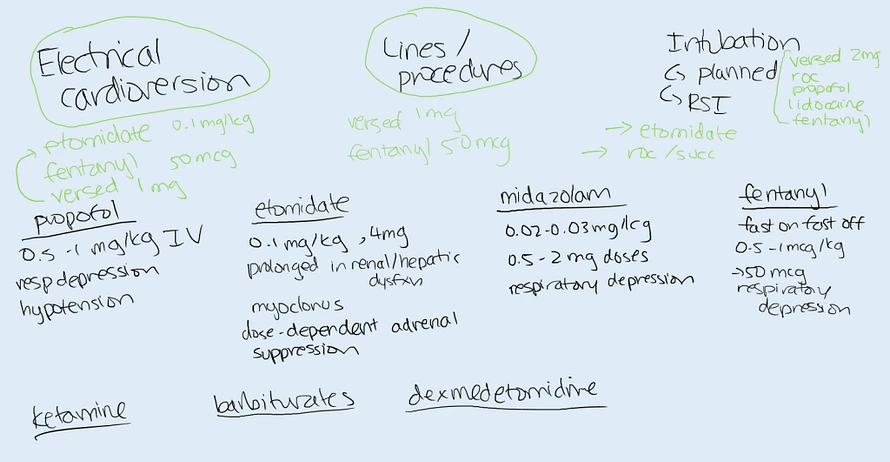 Electrical
cardioversion
etomidate 0.1mg/kg
fentanyl 50mcg
versed 1mg
Lines /
procedures
versed 1mg
fentanyl 50mcg
Intubation
↳ planned
↳ RSI
versed 2mg
roc
propofol
lidocaine
fentanyl
→ etomidate
→ roc/succ
propofol
0.5-1 mg/kg IV
resp depression
hypotension
etomidate
0.1mg/kg, 4mg
prolonged in renal/hepatic
dysfxn
myoclonus
dose-dependent adrenal
suppression
midazolam
0.02-0.03mg/kg
0.5-2mg doses
respiratory depression
fentanyl
fast on fast off
0.5-1mcg/kg
→50 mcg
respiratory
depression
ketamine
barbiturates
dexmedetomidine